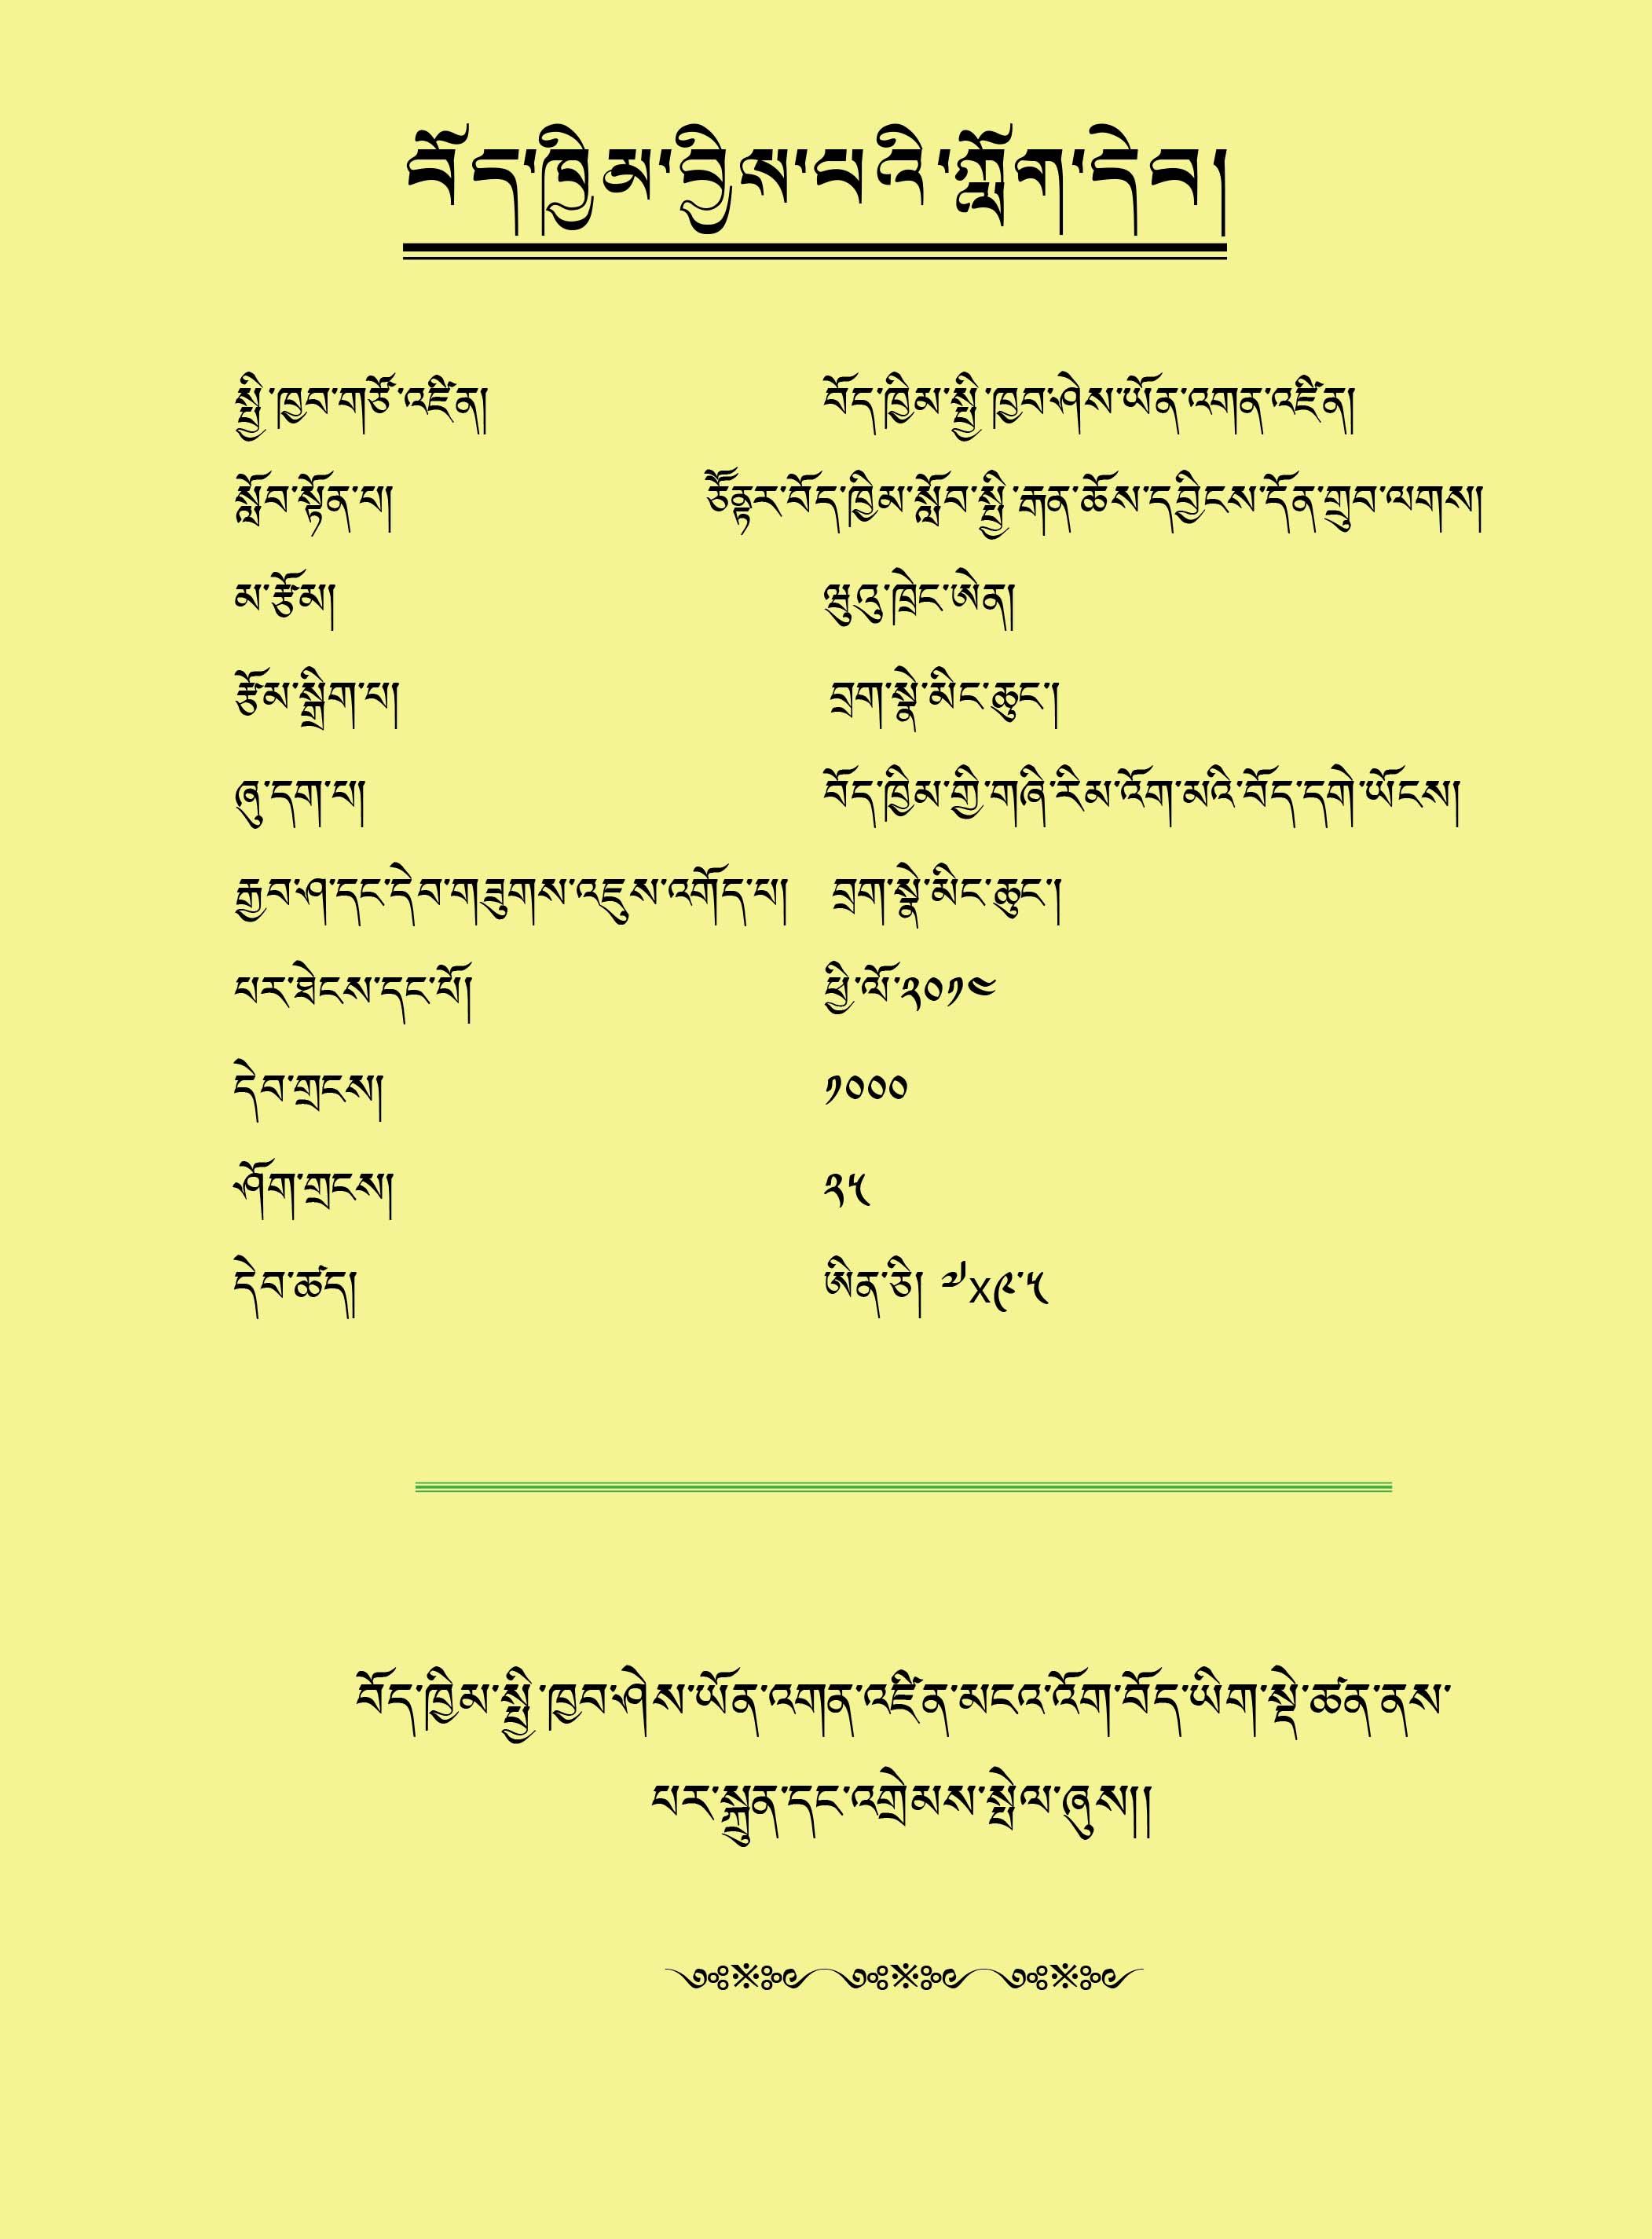 བོད་ཁྱིམ་བྱིས་པའི་ཀློག་དེབ།
སྤྱི་ཁྱབ་གཙོ་འཛིན། བོད་ཁྱིམ་སྤྱི་ཁྱབ་ཤེས་ཡོན་འགན་འཛིན།
སློབ་སྟོན་པ། ཅོོནྟར་བོད་ཁྱིམ་སློབ་སྤྱི་རྒན་ཆོས་དབྱིངས་དོན་གྲུབ་ལགས།
མ་རྩོམ། ཝུའུ་ཁྲེང་ཨེན།
རྩོམ་སྒྲིག་པ། བྲག་སྣེ་མིང་ཆུང་།
ཞུ་དག་པ། བོད་ཁྱིམ་གྱི་གཞི་རིམ་འོག་མའི་བོད་དགེ་ཡོངས།
རྒྱབ་ཤ་དང་དེབ་གཟུགས་འཇུས་འགོད་པ། བྲག་སྣེ་མིང་ཆུང་།
པར་ཐེངས་དང་པོ། ཕྱི་ལོ་༢༠༡༤
དེབ་གྲངས། ༡༠༠༠
ཤོག་གྲངས། ༢༥
དེབ་ཚད། ཨིན་ཅི། ༧x༩་༥
བོད་ཁྱིམ་སྤྱི་ཁྱབ་ཤེས་ཡོན་འགན་འཛིན་མངའ་འོག་བོད་ཡིག་སྡེ་ཚན་ནས་
པར་སྐྲུན་དང་འགྲེམས་སྤེལ་ཞུས།།